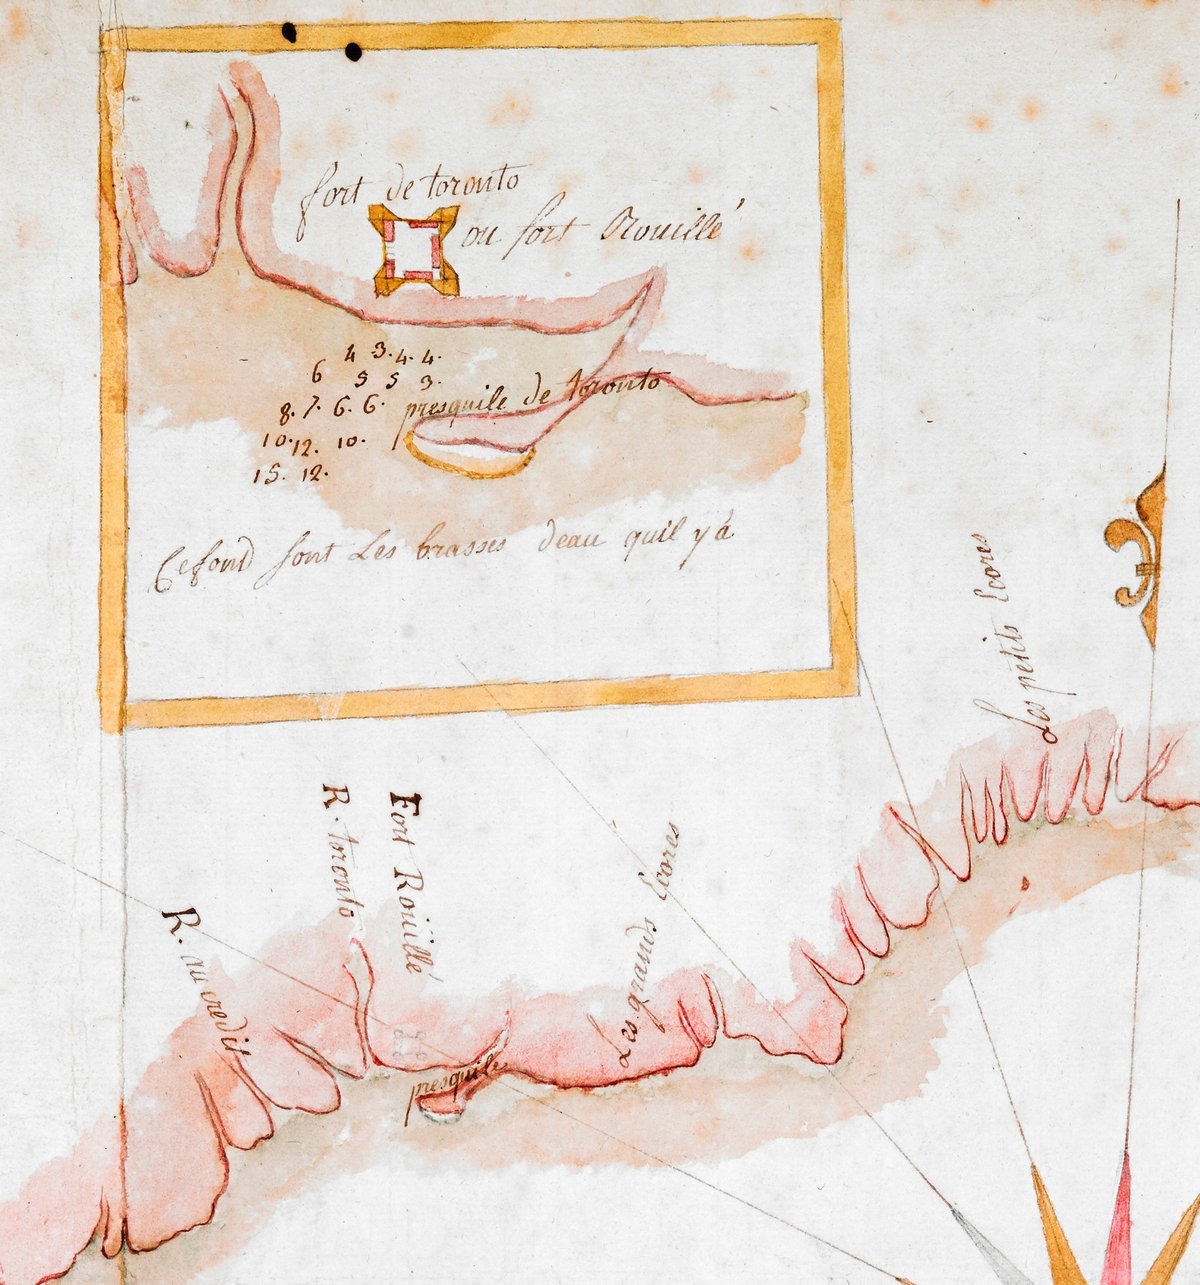 fort de toronto
ou fort Rouillé
4 3. 4. 4.
6 5 5 3.
8. 7. 6. 6. presquile de toronto
10. 12. 10.
15. 12.
Ce fond sont Les brasses deau quil y á
Les petits Ecores
R. toronto
Fort Roüillé
R. au credit
Les grands Ecores
presquile